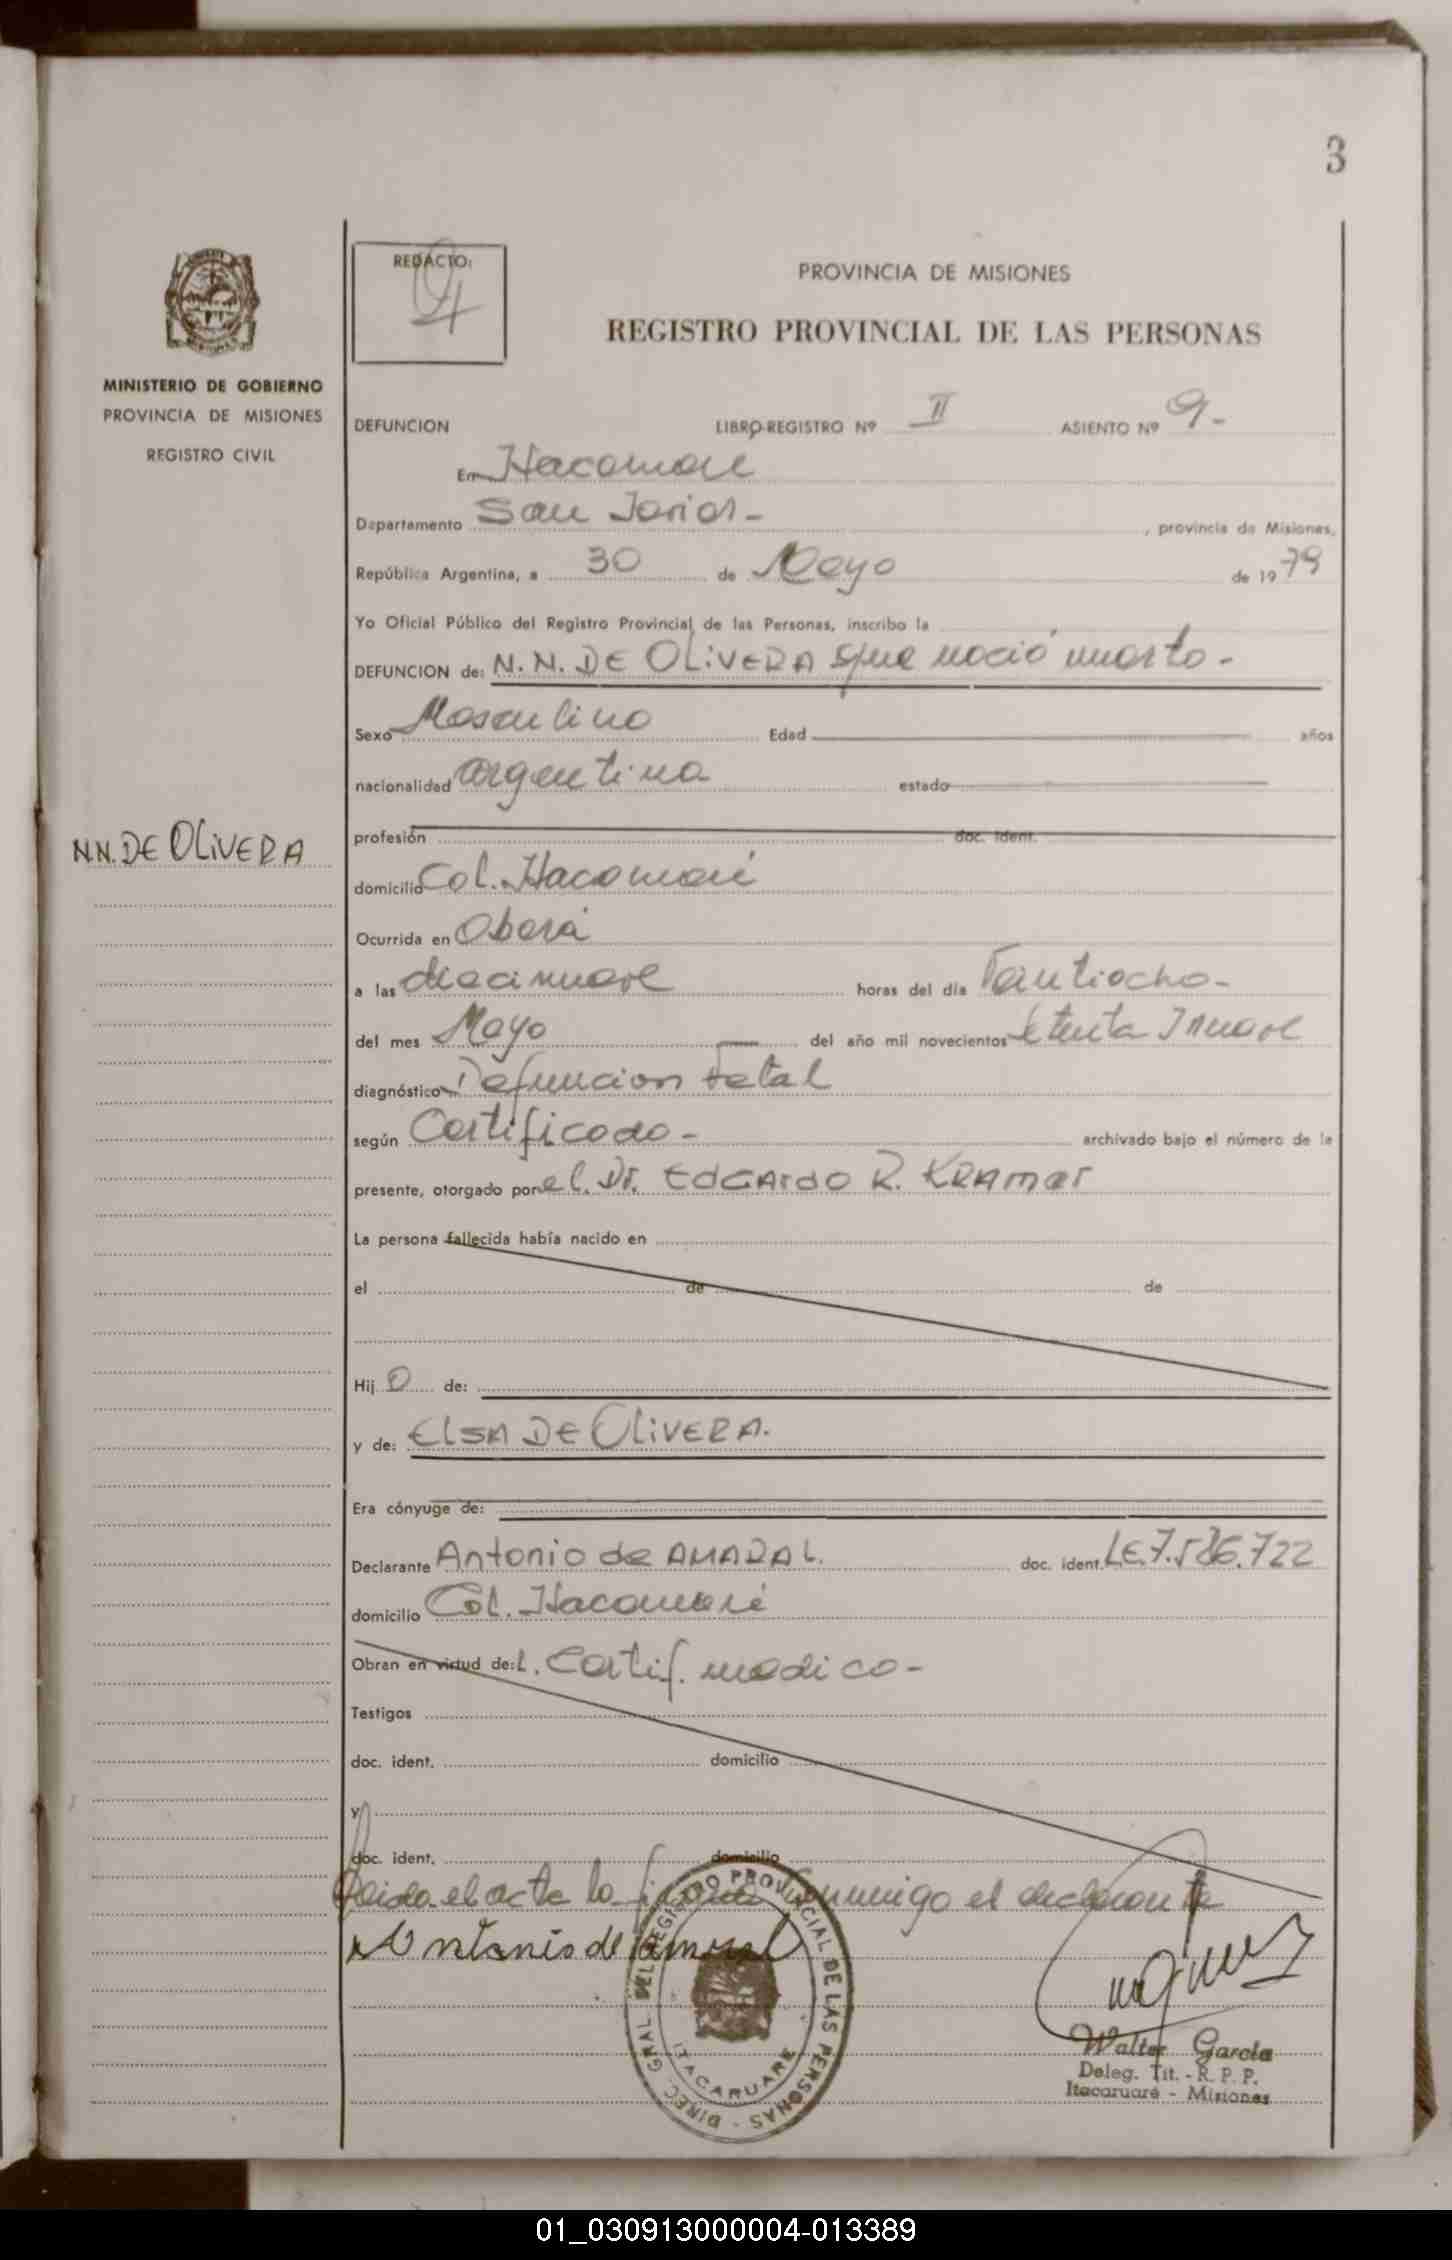 3
REDACTO:
PROVINCIA DE MISIONES
REGISTRO PROVINCIAL DE LAS PERSONAS
MINISTERIO DE GOBIERNO
PROVINCIA DE MISIONES
REGISTRO CIVIL
DEFUNCION LIBRO-REGISTRO Nº II ASIENTO Nº 9-
En Itacaruare
Departamento San Javier- , provincia de Misiones,
República Argentina, a 30 de Mayo de 1979
Yo Oficial Público del Registro Provincial de las Personas, inscribo la
DEFUNCION de: N.N. DE OLiVERA que nació muerto-
Sexo Masculino Edad años
nacionalidad argentina estado
N.N. DE OLiVERA
profesión doc. ident.
domicilio Col. Itacaruaré
Ocurrida en Oberá
a las diecinueve horas del día Veintiocho-
del mes Mayo del año mil novecientos setenta y nueve
diagnóstico Defuncion Fetal
según Certificado- archivado bajo el número de la
presente, otorgado por el Dr. EdGArdo R. KRAmer
La persona fallecida había nacido en
el de de
Hij o de:
y de: ELSA DE OLiVERA.
Era cónyuge de:
Declarante Antonio de AMARAL. doc. ident. LE.7.586.722
domicilio Col. Itacaruaré
Obran en virtud de: L. Certif. medico-
Testigos
doc. ident. domicilio
y
doc. ident. domicilio
Leida el acta la firma conmigo el declarante
Antonio de amaral
DIREC. GRAL. DEL REGISTRO PROVINCIAL DE LAS PERSONAS -
ITACARUARE
Walter García
Deleg. Tit. - R. P. P.
Itacaruaré - Misiones
01_030913000004-013389